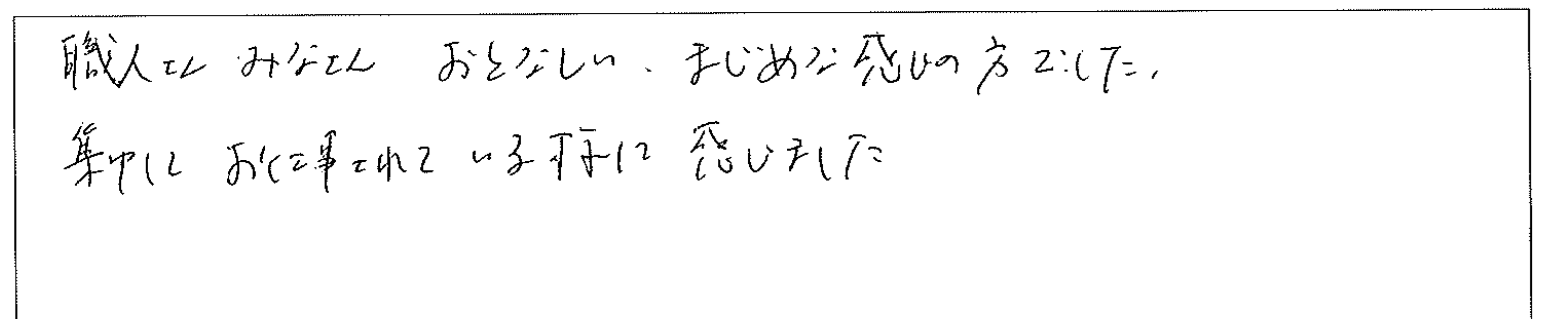 職人さん みなさん おとなしい、まじめな感じの方でした。
集中して お仕事されている様に 感じました